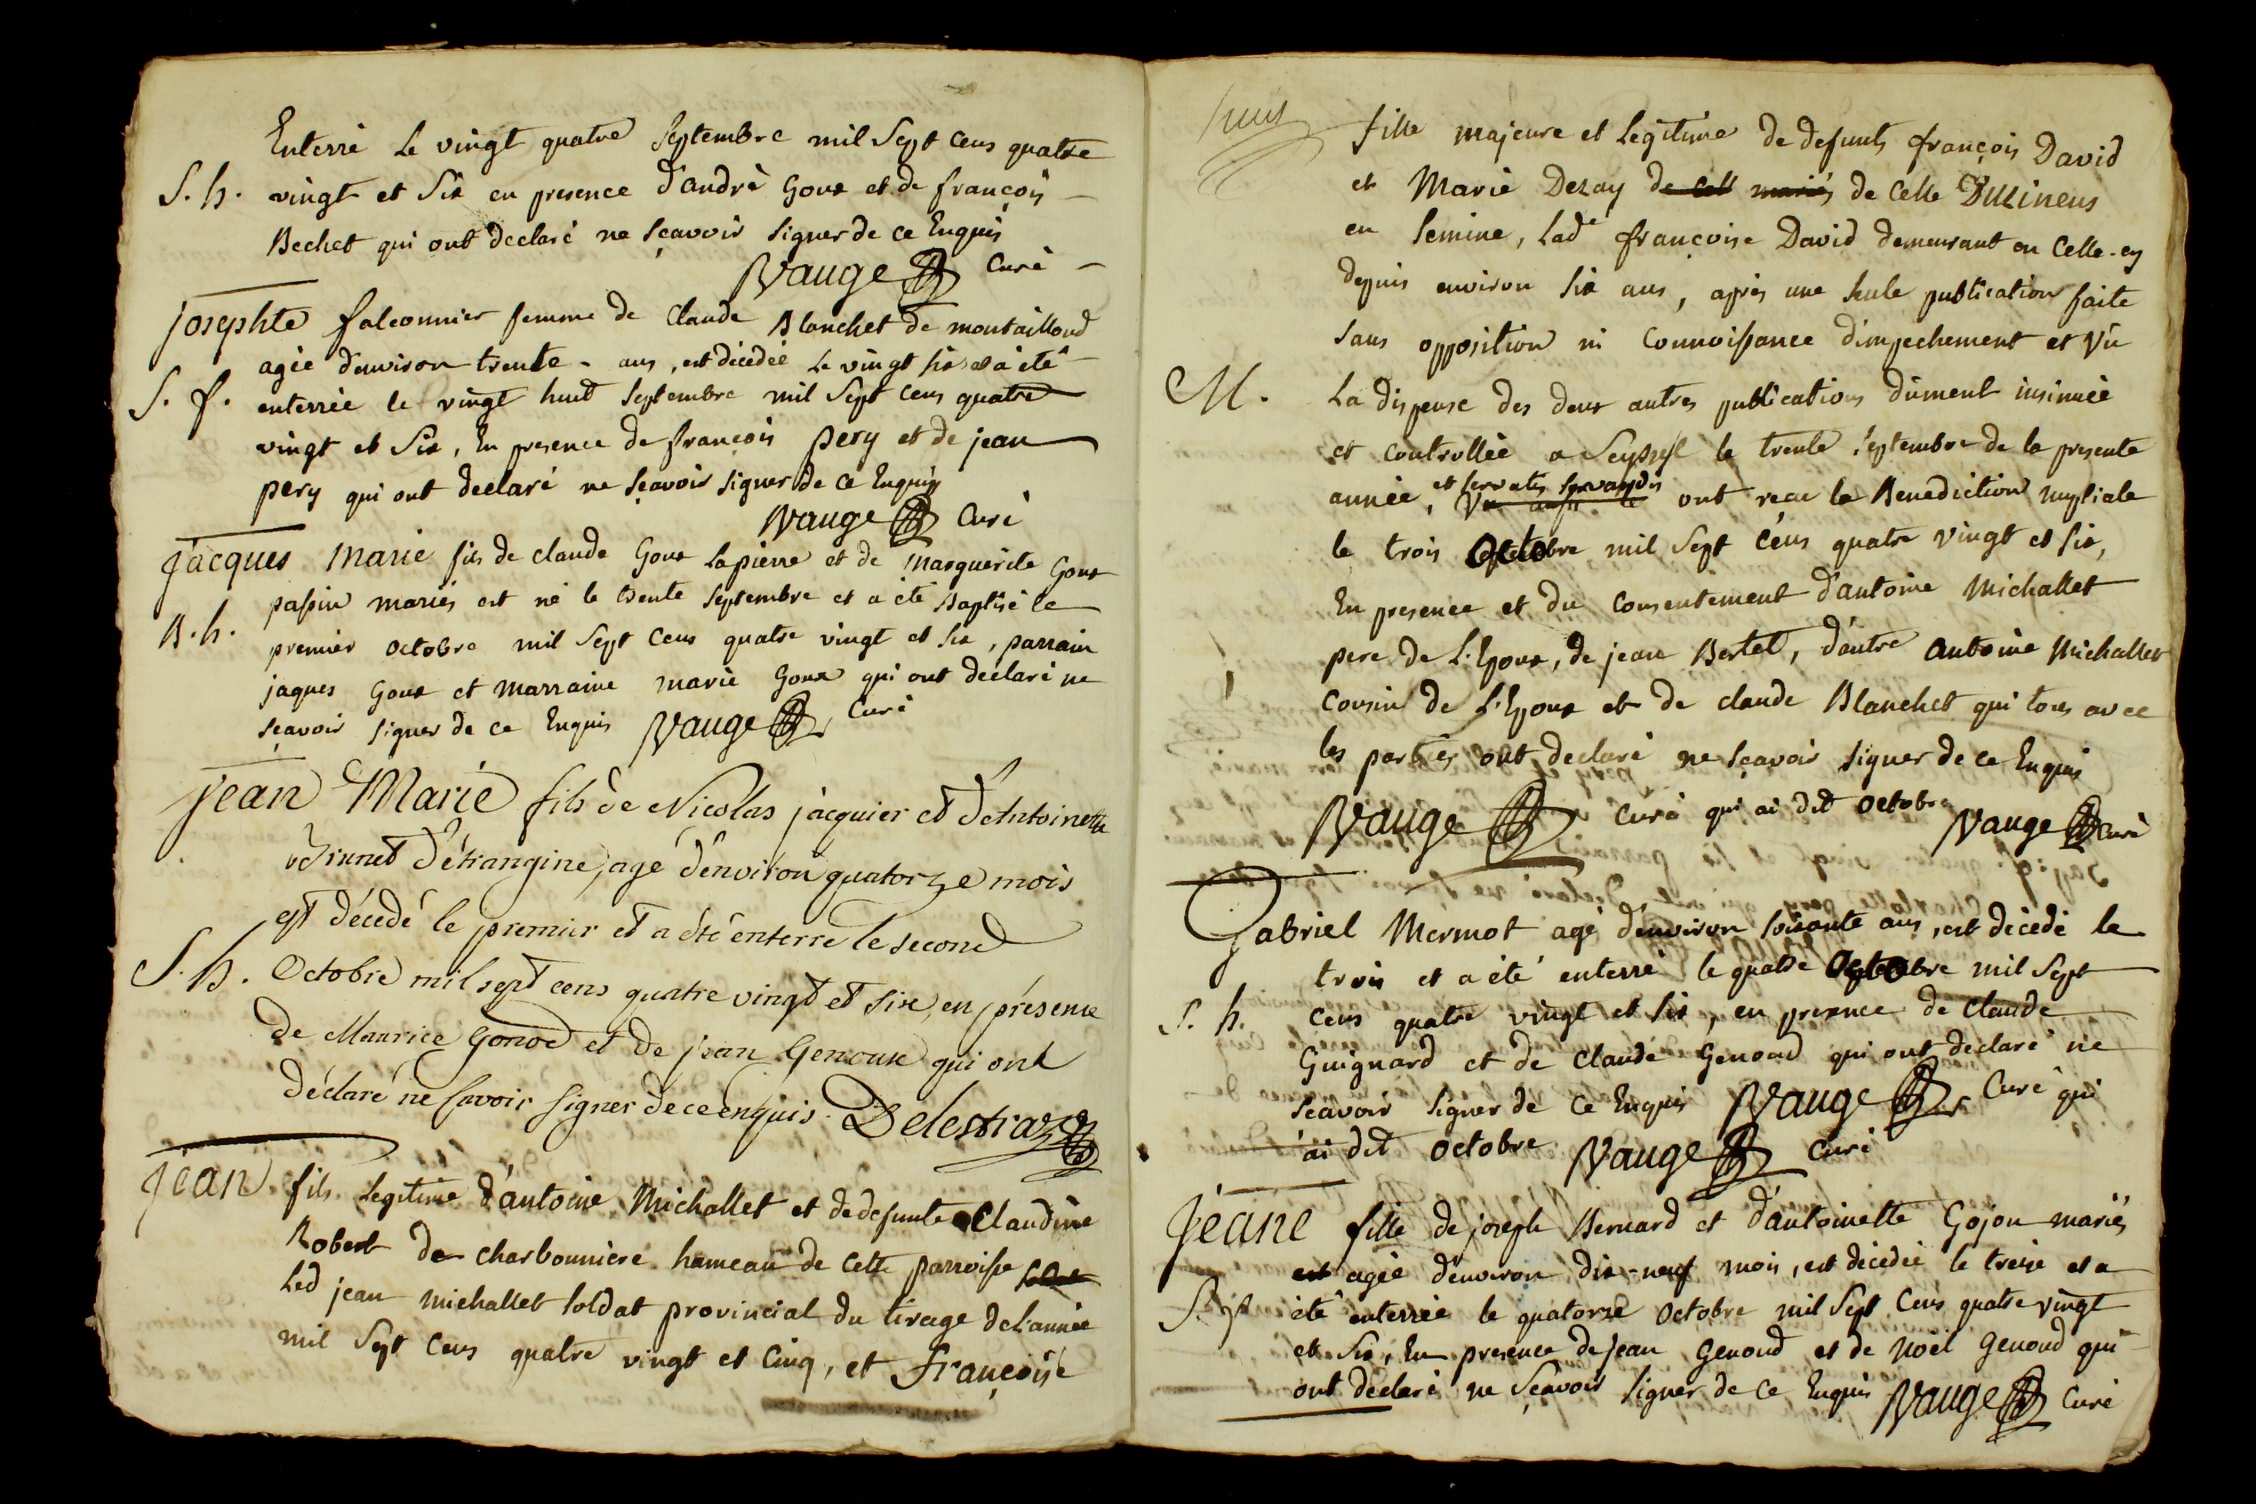 Enterré Le vingt quatre Septembre mil Sept cens quatre
S. h. vingt et Six en presence d'andré Goux et de françois
Bechet qui ont declaré ne sçavoir signer de ce Enquis
Vauge Curé
josephte falconnier femme de Claude Blanchet de montailloud
agée d'environ trente ans, est décedée Le vingt six et a été
S. f. enterrée le vingt huit septembre mil Sept cens quatre
vingt et Six, En presence de françois pery et de jean
pery qui ont declaré ne sçavoir signer de ce Enquis
Vauge Curé
jacques Marie fils de claude Goux Lapierre et de Marguerite Goux
passin mariés est né le trente Septembre et a été Baptisé le
B. h. premier octobre mil Sept Cens quatre vingt et six, parrain
jaques Goux et Marraine marie Goux qui ont declaré ne
sçavoir signer de ce Enquis Vauge Curé
jean Marie fils de Nicolas jacquier et d'Antoinette
d'étrangine, agé d'environ quatorze mois
est décedé le premier et a été enterré le second
S. h. Octobre mil sept cens quatre vingt et six, en présence
de Maurice Gonod et de jean Genoux qui ont
déclaré ne savoir signer de ce enquis. Delestraz
jean fils Legitime d'antoine Michallet et de defunte Claudine
Robert de charbonniere hameau de cette parroisse
Led jean michallet soldat provincial du tirage de l'année
mil Sept Cens quatre vingt et Cinq, et françoise
fille majeure et Legitime de defunts françois David
et Marie Dezay de cell mariés de Celle
en Semine, Lade françoise David demeurant en Celle-cy
depuis environ Six ans, après une seule publication faite
sans opposition ni Connoissance d'impechement et Vû
M. La dispense des deux autres publications dûment insinuée
et controllée a Seyssel le trente septembre de la presente
et servatis servandis
année, ont reçu la Benediction nuptiale
le trois octobre mil Sept Cens quatre vingt et six,
En presence et du Consentement d'antoine Michallet
pere de L'Epoux, de jean Bertet, d'autre antoine Michallet
Cousin de L'Epoux et de claude Blanchet qui tous avec
les parties ont declaré ne sçavoir signer de ce Enquis
Vauge Curé qui ai dit octobre Vauge Curé
Gabriel Mermot agé d'environ soixante ans, est décedé le
trois et a été enterré le quatre octobre mil Sept
S. h. Cens quatre vingt et six, en presence de Claude
Guignard et de Claude Genoud qui ont declaré ne
sçavoir signer de ce Enquis Vauge Curé qui
ai dit octobre Vauge Curé
jeane fille de joseph Bernard et d'antoinette Gojon mariés
est agée d'environ dix-neuf mois, est décedée le treize et a
S. f. été enterrée le quatorze octobre mil Sept Cens quatre vingt
et Six, En presence de jean Genoud et de Noël Genoud qui
ont declaré ne Sçavoir signer de ce Enquis Vauge Curé